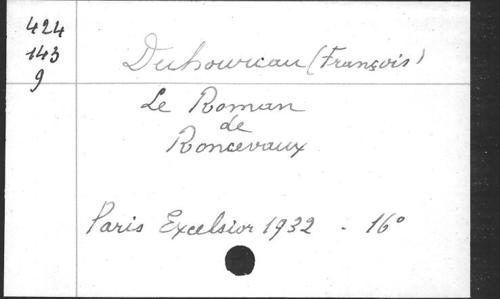 424
143
9
Duhourcau (François)
Le Roman
de
Roncevaux
Paris Excelsior 1932 - 16°